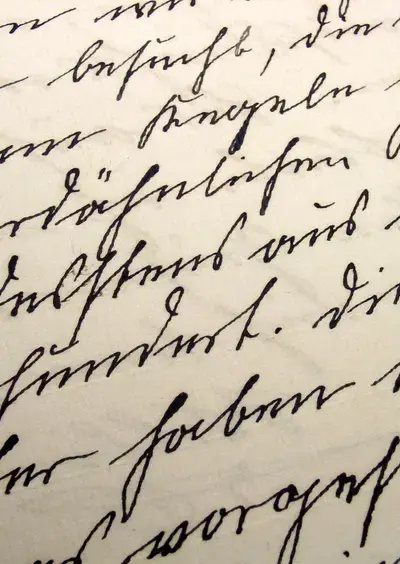 besucht, die
Kegeln
rdähnlichen
destens aus
hundert. Die
er haben
vorges